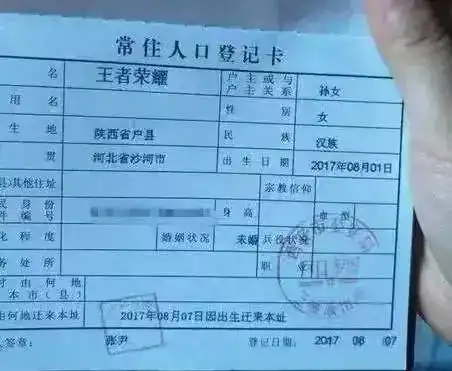 常住人口登记卡
名 王者荣耀 户主或与户主关系 孙女
用名 性别 女
生地 陕西省户县 民族 汉族
贯 河北省沙河市 出生日期 2017年08月01日
县)其他住址 宗教信仰
民身份
件编号 身高 血型
化程度 婚姻状况 未婚 兵役状况
务处所 职业
时由何地
本市(县)
由何地迁来本址 2017年08月07日因出生迁来本址
人签章: 张尹 登记日期: 2017 08 07